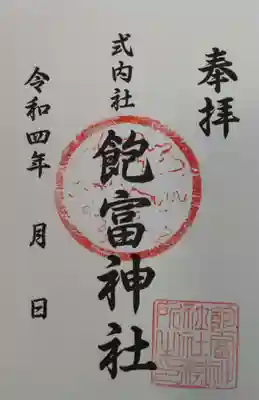 奉拝
式内社
飽富神社
令和四年　月　日